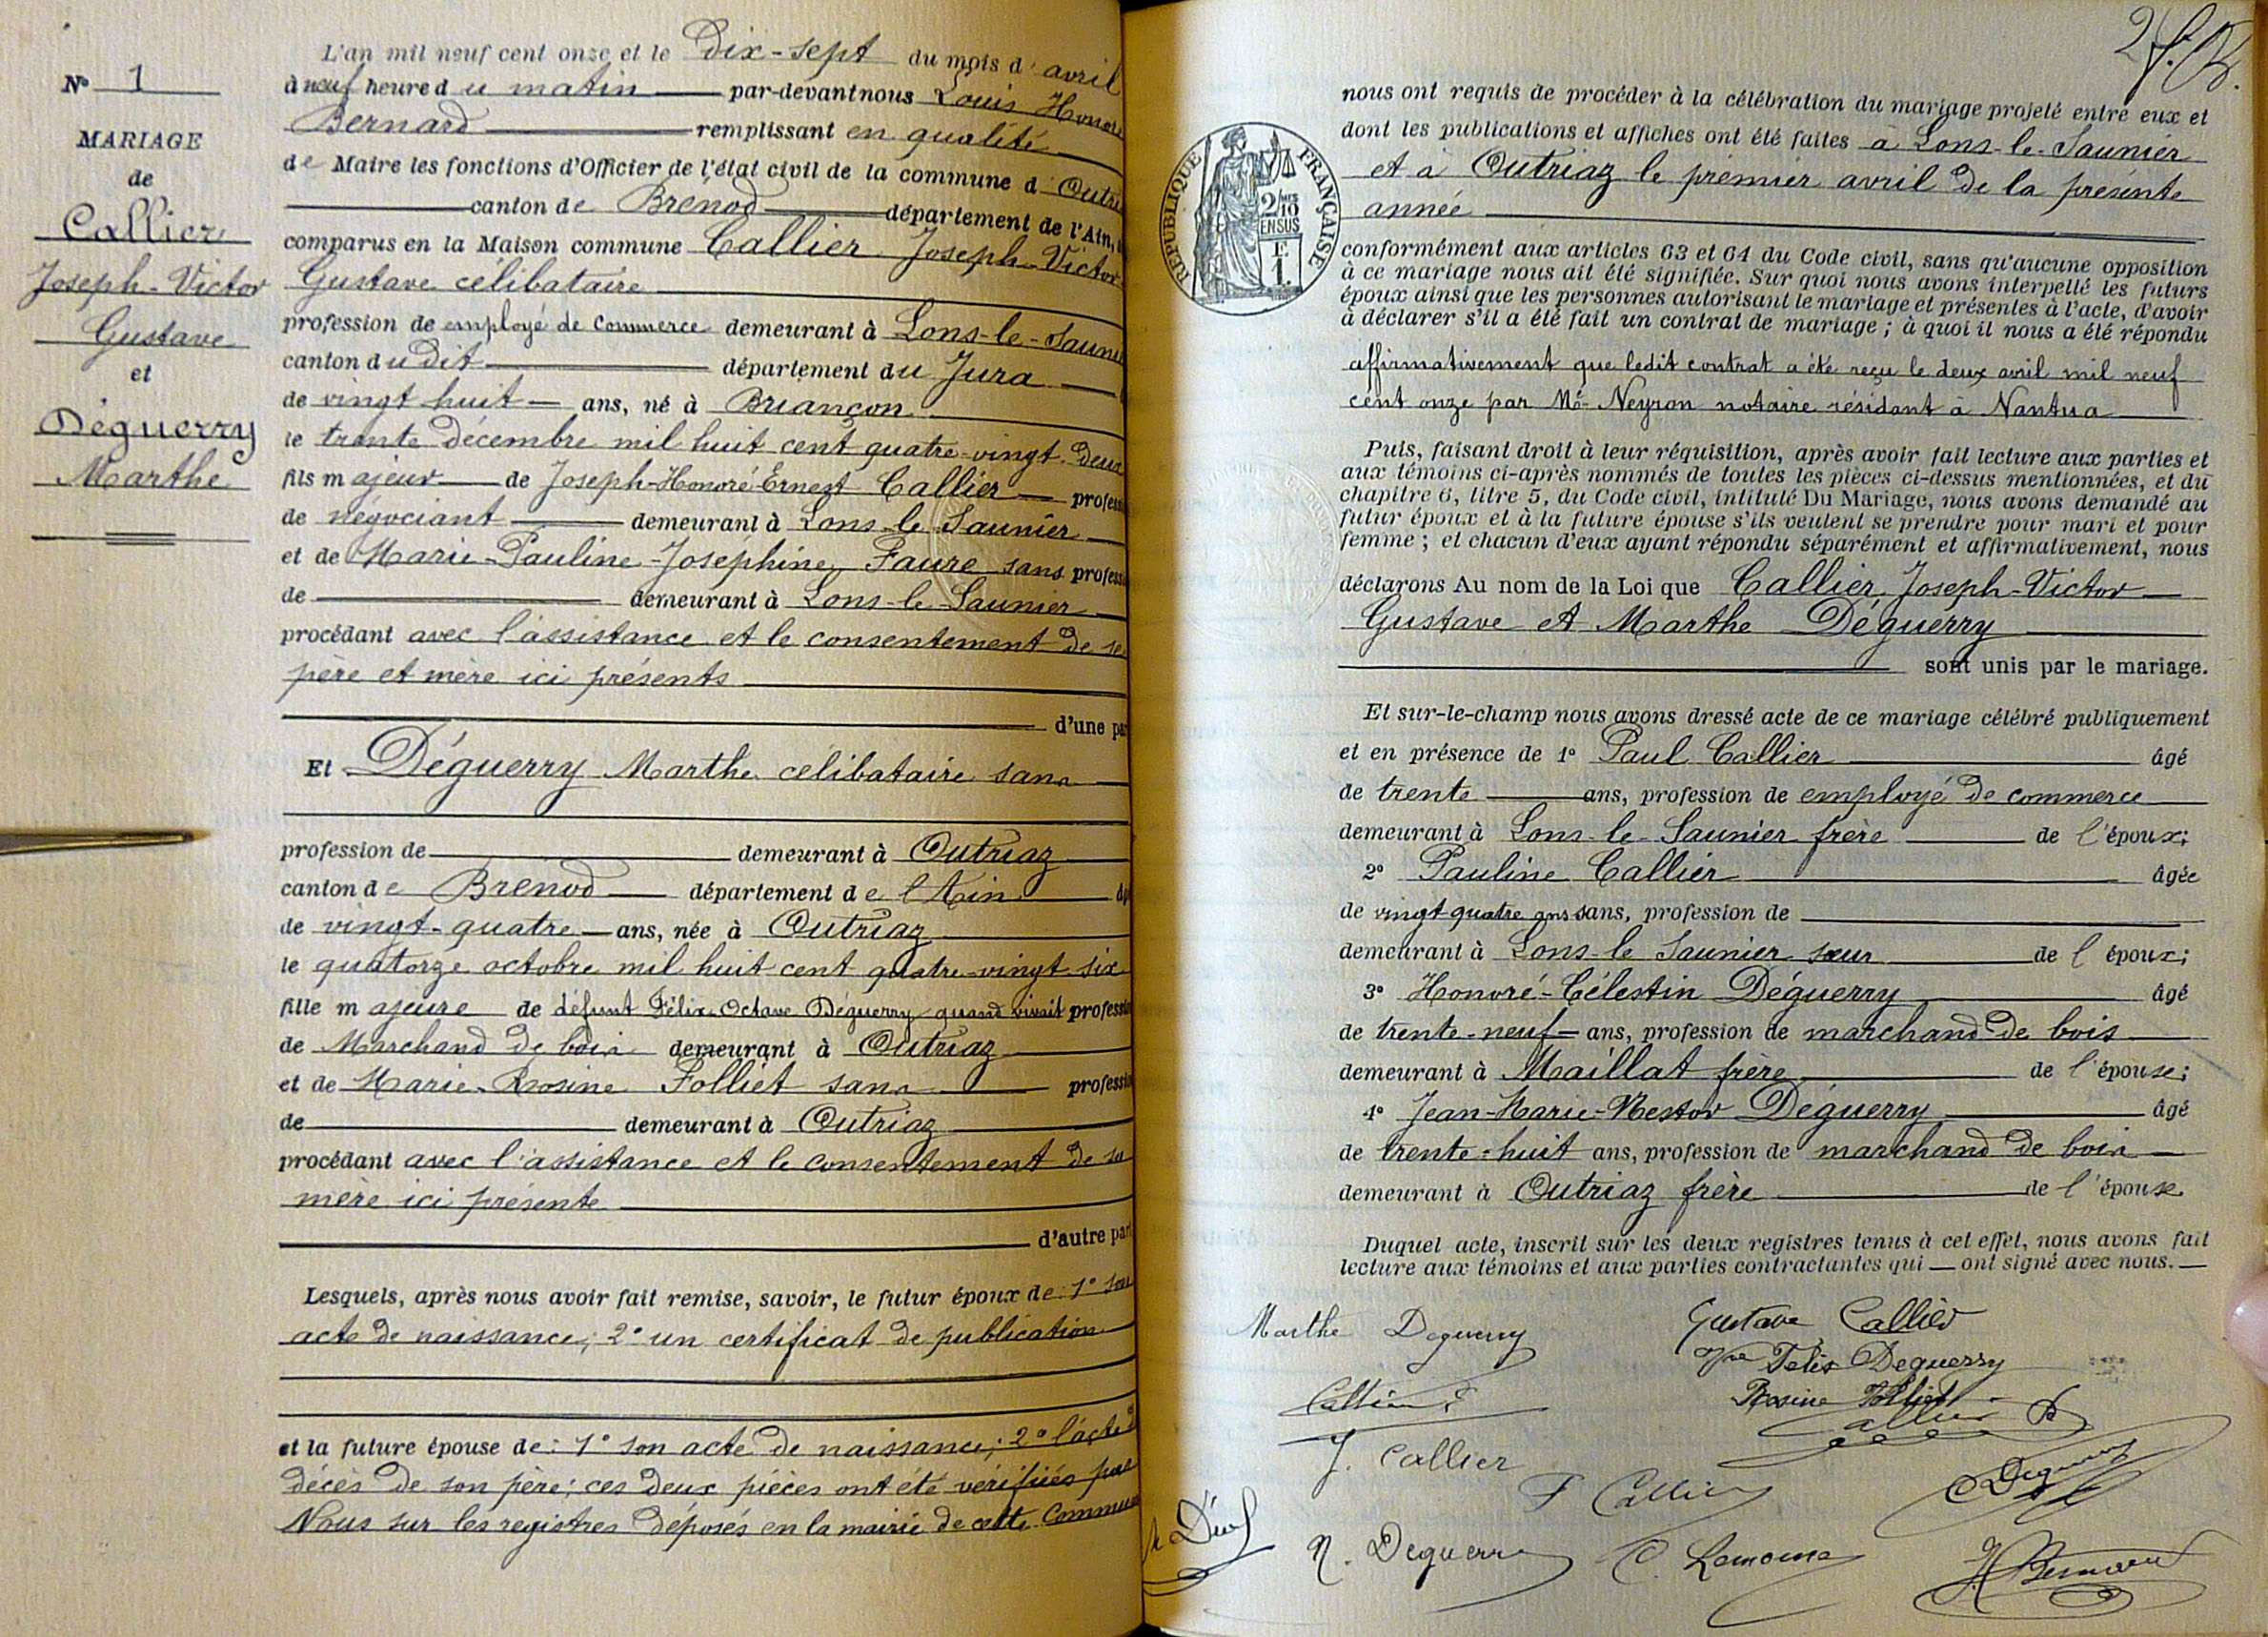 N° 1
MARIAGE
de
Callier
Joseph-Victor
Gustave
et
Déguerry
Marthe
L'an mil neuf cent onze et le Dix-sept du mois d'avril
à neuf heure du matin par-devant nous Louis Honoré
Bernard remplissant en qualité
de Maire les fonctions d'Officier de l'état civil de la commune d'Outri
canton de Brénod département de l'Ain,
comparus en la Maison commune Callier Joseph-Victor
Gustave célibataire
profession de employé de commerce demeurant à Lons-le-Saunier
canton du dit département du Jura
de vingt huit ans, né à Briançon
le trente décembre mil huit cent quatre-vingt-deux
fils majeur de Joseph-Honoré-Ernest Callier professi
de négociant demeurant à Lons-le-Saunier
et de Marie-Pauline-Joséphine Faure sans professi
de demeurant à Lons-le-Saunier
procédant avec l'assistance et le consentement de se
père et mère ici présents
d'une par
Et Déguerry Marthe celibataire sans
profession de demeurant à Outriaz
canton de Brenod département de l'Ain
de vingt-quatre ans, née à Outriaz
le quatorze octobre mil huit cent quatre-vingt-six
fille majeure de défunt Félix-Octave Déguerry quand vivait professi
de Marchand de bois demeurant à Outriaz
et de Marie-Rosine Folliet sans professi
de demeurant à Outriaz
procédant avec l'assistance et le consentement de sa
mère ici présente
d'autre par
Lesquels, après nous avoir fait remise, savoir, le futur époux de: 1° son
acte de naissance; 2° un certificat de publication
et la future épouse de: 1° son acte de naissance; 2° l'acte de
décès de son père; ces deux pièces ont été vérifiées par
Nous sur les registres déposés en la mairie de cette commune
2
nous ont requis de procéder à la célébration du mariage projeté entre eux et
dont les publications et affiches ont été faites à Lons-le-Saunier
et à Outriaz le premier avril de la présente
année
RÉPUBLIQUE FRANÇAISE
2/10 MES
EN SUS
E
1.
conformément aux articles 63 et 64 du Code civil, sans qu'aucune opposition
à ce mariage nous ait été signifiée. Sur quoi nous avons interpellé les futurs
époux ainsi que les personnes autorisant le mariage et présentes à l'acte, d'avoir
à déclarer s'il a été fait un contrat de mariage; à quoi il nous a été répondu
affirmativement que ledit contrat a été reçu le deux avril mil neuf
cent onze par Me Neyron notaire résidant à Nantua
Puis, faisant droit à leur réquisition, après avoir fait lecture aux parties et
aux témoins ci-après nommés de toutes les pièces ci-dessus mentionnées, et du
chapitre 6, titre 5, du Code civil, intitulé Du Mariage, nous avons demandé au
futur époux et à la future épouse s'ils veulent se prendre pour mari et pour
femme; et chacun d'eux ayant répondu séparément et affirmativement, nous
déclarons Au nom de la Loi que Callier Joseph-Victor
Gustave et Marthe Déguerry
sont unis par le mariage.
Et sur-le-champ nous avons dressé acte de ce mariage célébré publiquement
et en présence de 1° Paul Callier âgé
de trente ans, profession de employé de commerce
demeurant à Lons-le-Saunier frère de l'époux;
2° Pauline Callier âgée
de vingt-quatre ans sans, profession de
demeurant à Lons-le Saunier sœur de l'époux;
3° Honoré-Célestin Déguerry âgé
de trente-neuf ans, profession de marchand de bois
demeurant à Maillat frère de l'épouse;
4° Jean-Marie-Nestor Déguerry âgé
de trente-huit ans, profession de marchand de bois
demeurant à Outriaz frère de l'épouse
Duquel acte, inscrit sur les deux registres tenus à cet effet, nous avons fait
lecture aux témoins et aux parties contractantes qui ont signé avec nous.
Marthe Deguerry Gustave Callier
Félix Deguerry
Rosine Folliet
J. Callier
N. Deguerry C. Lemoine H Bernard